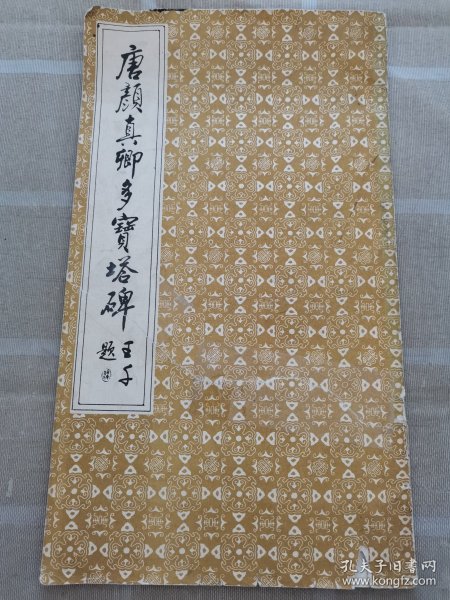 唐顏真卿多寶塔碑
王千
題
孔夫子旧书网
www.kongfz.com